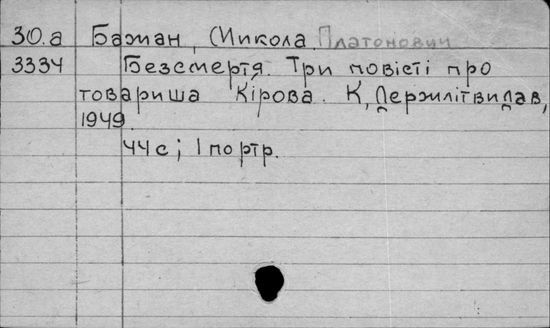 30.а Бажан, Микола Платонович
3334 Безсмертя. Три повісті про
товариша Кірова. К, Держлітвидав,
1949.
44с; 1 портр.